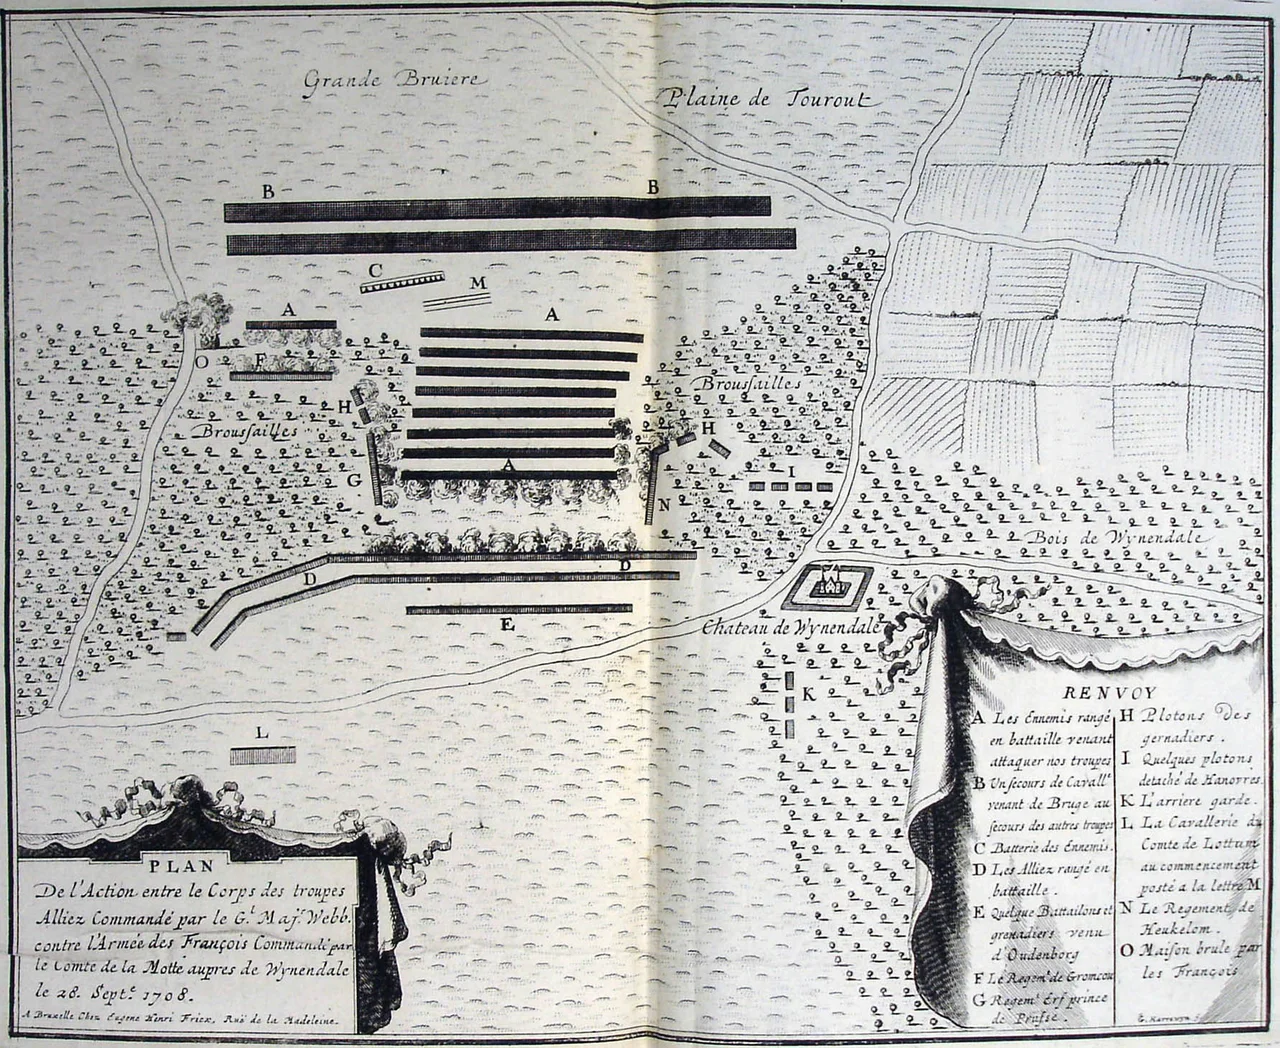 Grande Bruiere
Plaine de Tourout
B
B
C
M
A
A
O
F
Broussailles
H
H
Broussailles
A
G
I
N
Bois de Wynendale
D
D
E
Chateau de Wynendale
K
L
PLAN
De l'Action entre le Corps des troupes
Alliez Commandé par le G.l Maj.r Webb.
contre l'Armée des François Commandé par
le Comte de la Motte aupres de Wynendale
le 28. Sept.e 1708.
A Bruxelle Chez Eugene Henri Fricx, Ruë de la Madeleine.
RENVOY
A Les Ennemis rangé
en battaille venant
attaquer nos troupes
B Un secours de Cavall.e
venant de Bruge au
secours des autres troupes
C Batterie des Ennemis.
D Les Alliez rangé en
battaille.
E Quelque Battailons et
grenadiers venu
d'Oudenborg
F Le Regim.t de Gromcou
G Regem.t Erf prince
de Prusse.
H Plotons des
gernadiers.
I Quelques plotons
detaché de Hanovres
K L'arriere garde.
L La Cavallerie du
Comte de Lottum
au commencement
posté a la lettre M
N Le Regement de
Heukelom.
O Maison brule par
les François